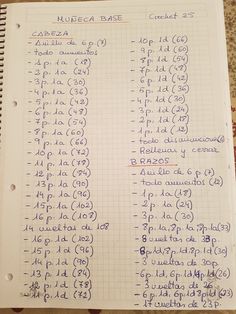 MUÑECA BASE
Crochet 25
CABEZA
- Anillo de 6 p (7)
- todo aumentos
- 1 p. 1a (18)
- 2 p. 1a (24)
- 3 p. 1a (30)
- 4 p. 1a (36)
- 5 p. 1a (42)
- 6 p. 1a (48)
- 7 p. 1a (54)
- 8 p. 1a (60)
- 9 p. 1a (66)
- 10 p. 1a (72)
- 11 p. 1a (78)
- 12 p. 1a (84)
- 13 p. 1a (90)
- 14 p. 1a (96)
- 15 p. 1a (102)
- 16 p. 1a (108)
14 vueltas de 108
- 16 p. 1d (102)
- 15 p. 1d (96)
- 14 p. 1d (90)
- 13 p. 1d (84)
- 12 p. 1d (78)
- 11 p. 1d (72)
- 10 p. 1d (66)
- 9 p. 1d (60)
- 8 p. 1d (54)
- 7 p. 1d (48)
- 6 p. 1d (42)
- 5 p. 1d (36)
- 4 p. 1d (30)
- 3 p. 1d (24)
- 2 p. 1d (18)
- 1 p. 1d (12)
- todo disminuciones (6)
- Rellenar y cerrar
BRAZOS
- Anillo de 6 p. (7)
- todo aumentos (12)
- 1 p. 1a (18)
- 2 p. 1a (24)
- 3 p. 1a (30)
- 8 p. 1a, 8 p. 1a, 8 p. 1a (33)
- 8 vueltas de 33 p.
- 8 p. 1d, 8 p. 1d, 8 p. 1d (30)
- 3 vueltas de 30 p.
- 3 vueltas de 26
- 17 vueltas de 23 p.